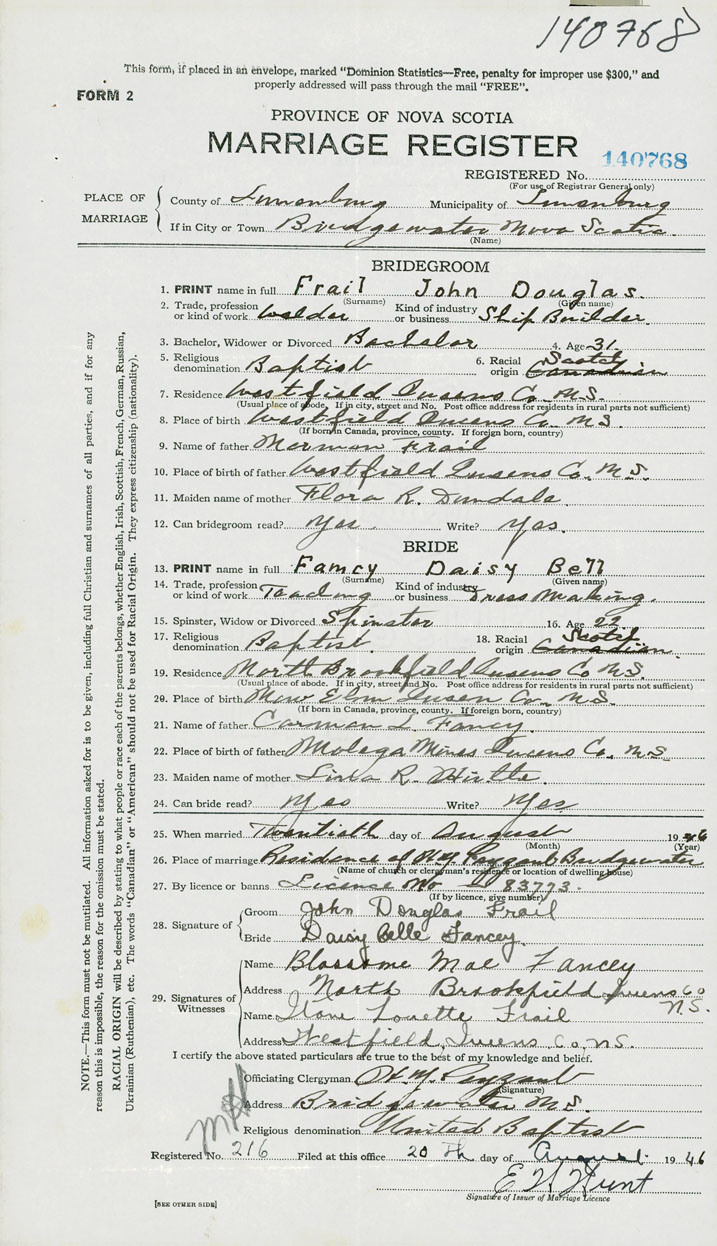 140768
This form, if placed in an envelope, marked "Dominion Statistics—Free, penalty for improper use $300," and
properly addressed will pass through the mail "FREE".
FORM 2
PROVINCE OF NOVA SCOTIA
MARRIAGE REGISTER
140768
REGISTERED No.
(For use of Registrar General only)
PLACE OF MARRIAGE
County of Lunenburg Municipality of Lunenburg
If in City or Town Bridgewater Nova Scotia
(Name)
BRIDEGROOM
1. PRINT name in full Frail John Douglas.
(Surname) (Given name)
2. Trade, profession or kind of work Welder Kind of industry or business Ship Builder.
3. Bachelor, Widower or Divorced Bachelor 4. Age 31.
5. Religious denomination Baptist 6. Racial origin Scotch Canadian
7. Residence Westfield Queens Co. N.S.
(Usual place of abode. If in city, street and No. Post office address for residents in rural parts not sufficient)
8. Place of birth Westfield Queens Co. N.S.
(If born in Canada, province, county. If foreign born, country)
9. Name of father Norman Frail
10. Place of birth of father Westfield Queens Co. N.S.
11. Maiden name of mother Flora R.
12. Can bridegroom read? Yes. Write? Yes.
BRIDE
13. PRINT name in full Fancy Daisy Bell
(Surname) (Given name)
14. Trade, profession or kind of work Kind of industry or business Dress Making.
15. Spinster, Widow or Divorced Spinster 16. Age 22
17. Religious denomination Baptist. 18. Racial origin Scotch Canadian.
19. Residence North Brookfield Queens Co N.S.
(Usual place of abode. If in city, street and No. Post office address for residents in rural parts not sufficient)
20. Place of birth New Elm Queen Co. N.S.
(If born in Canada, province, county. If foreign born, country)
21. Name of father Carman L. Fancy
22. Place of birth of father Molega Mines Queens Co. N.S.
23. Maiden name of mother R.
24. Can bride read? Yes Write? Yes
25. When married Twentieth day of August 1946
(Month) (Year)
26. Place of marriage Residence of Payzant Bridgewater
(Name of church or clergyman's residence or location of dwelling house)
27. By licence or banns Licence No 83773.
(If by licence, give number)
28. Signature of
Groom John Douglas Frail
Bride Daisy Belle Fancey.
29. Signatures of Witnesses
Name Blossome Mae Fancey
Address North Brookfield Queens Co
N.S.
Name Frail
Address Westfield, Queens Co. N.S.
I certify the above stated particulars are true to the best of my knowledge and belief.
Officiating Clergyman Payzant
(Signature)
Address Bridgewater N.S.
Religious denomination United Baptist
Registered No. 216 Filed at this office 20 th day of August 1946
E Hunt
Signature of Issuer of Marriage Licence
[SEE OTHER SIDE]
NOTE.—This form must not be mutilated. All information asked for is to be given, including full Christian and surnames of all parties, and if for any
reason this is impossible, the reason for the omission must be stated.
RACIAL ORIGIN will be described by stating to what people or race each of the parents belongs, whether English, Irish, Scottish, French, German, Russian,
Ukrainian (Ruthenian), etc. The words "Canadian" or "American" should not be used for Racial Origin. They express citizenship (nationality).